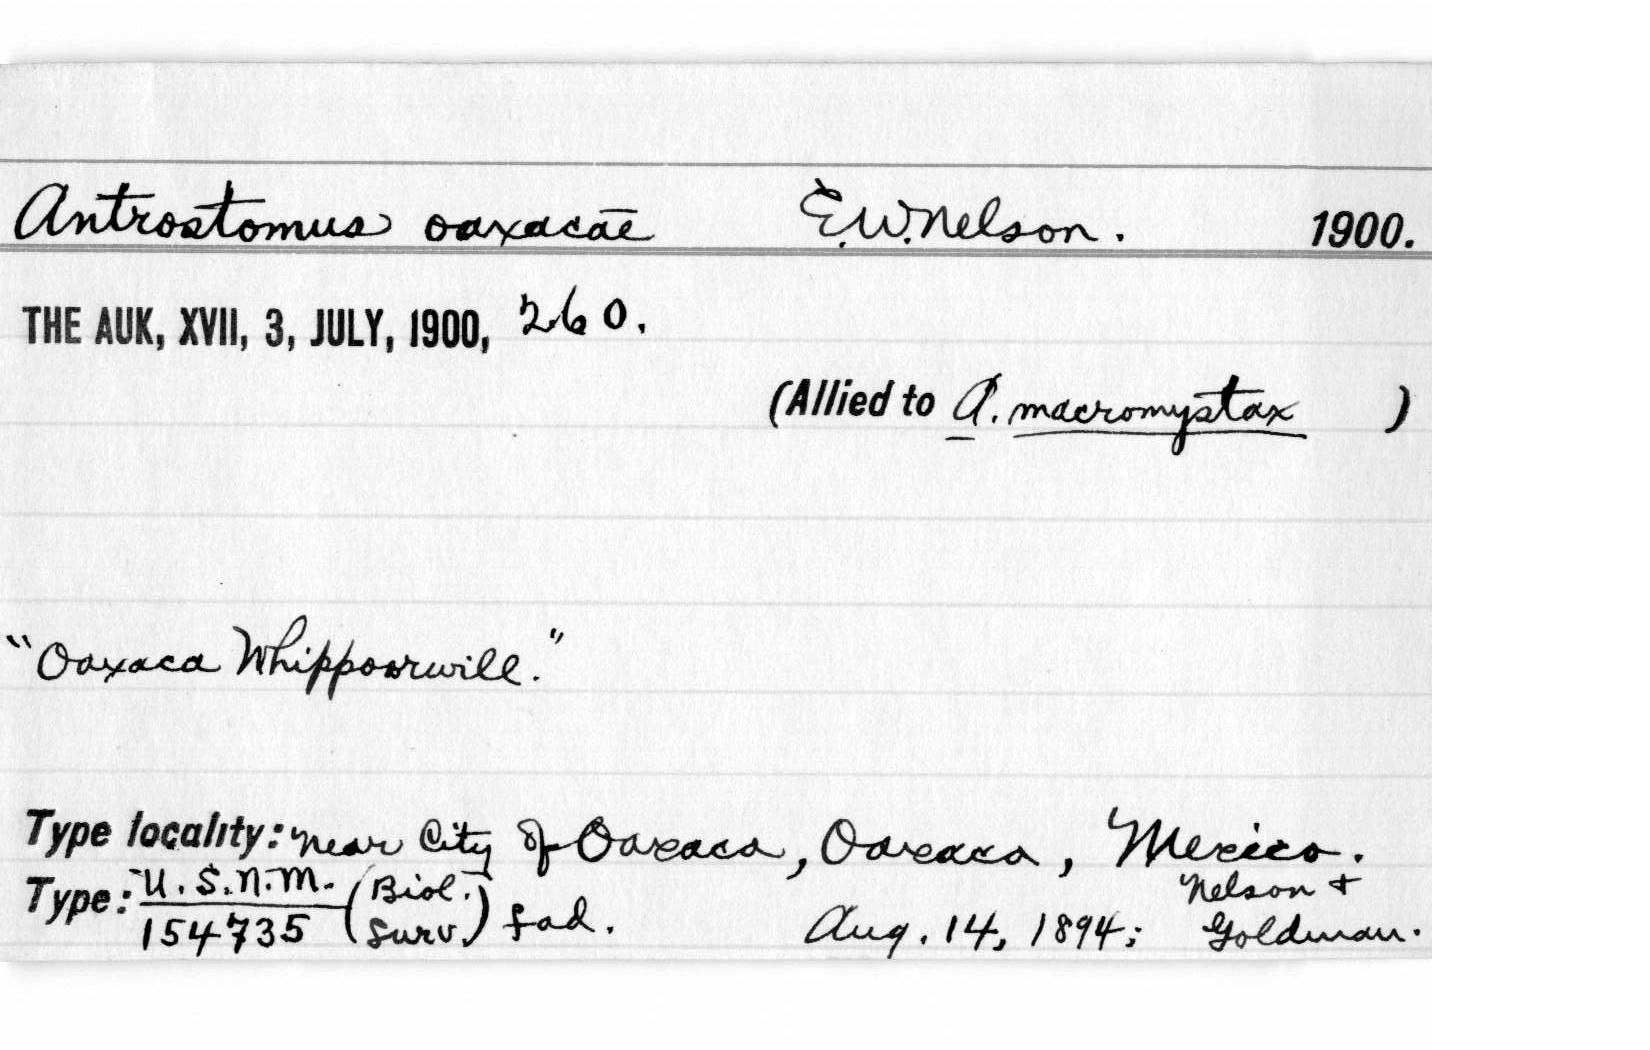 Antrostomus oaxacae E.W.Nelson. 1900.
THE AUK, XVII, 3, JULY, 1900, 260.
(Allied to A. macromystax )
"Oaxaca Whippoorwill."
Type locality: near City of Oaxaca, Oaxaca, Mexico.
Type: U.S.N.M. 154735 (Biol. Surv.) f ad. Aug. 14, 1894; Nelson + Goldman.